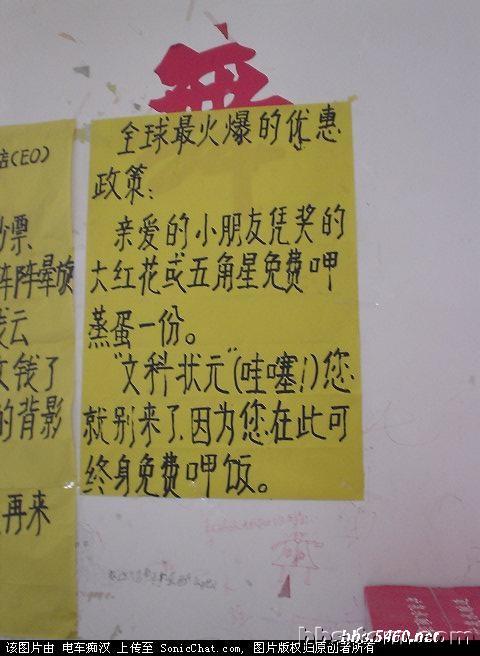 店(CEO)
钞票
阵阵晕旋
钱云
文钱了
的背影
再来
全球最火爆的优惠
政策:
亲爱的小朋友凭奖的
大红花或五角星免费呷
蒸蛋一份。
"文科状元"(哇噻!)您
就别来了.因为您在此可
终身免费呷饭。
bbs.5460.net
该图片由 电车痴汉 上传至 SonicChat.com, 图片版权归原创者所有